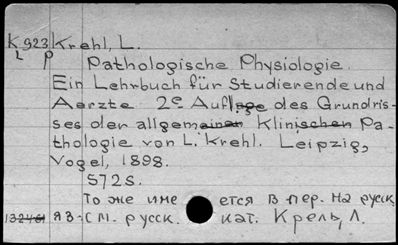 K 923 Krehl, L.
L p Pathologische Physiologie.
Ein Lehrbuch für Studierende und
Aerzte 2e Auflage des Grundris-
ses der allgemeinen Klinischen Pa-
thologie von L. Krehl. Leipzig,
Vogel, 1898.
572s.
То же имеется в пер. на русск.
132461 яз. См. русск. кат. Крель, Л.